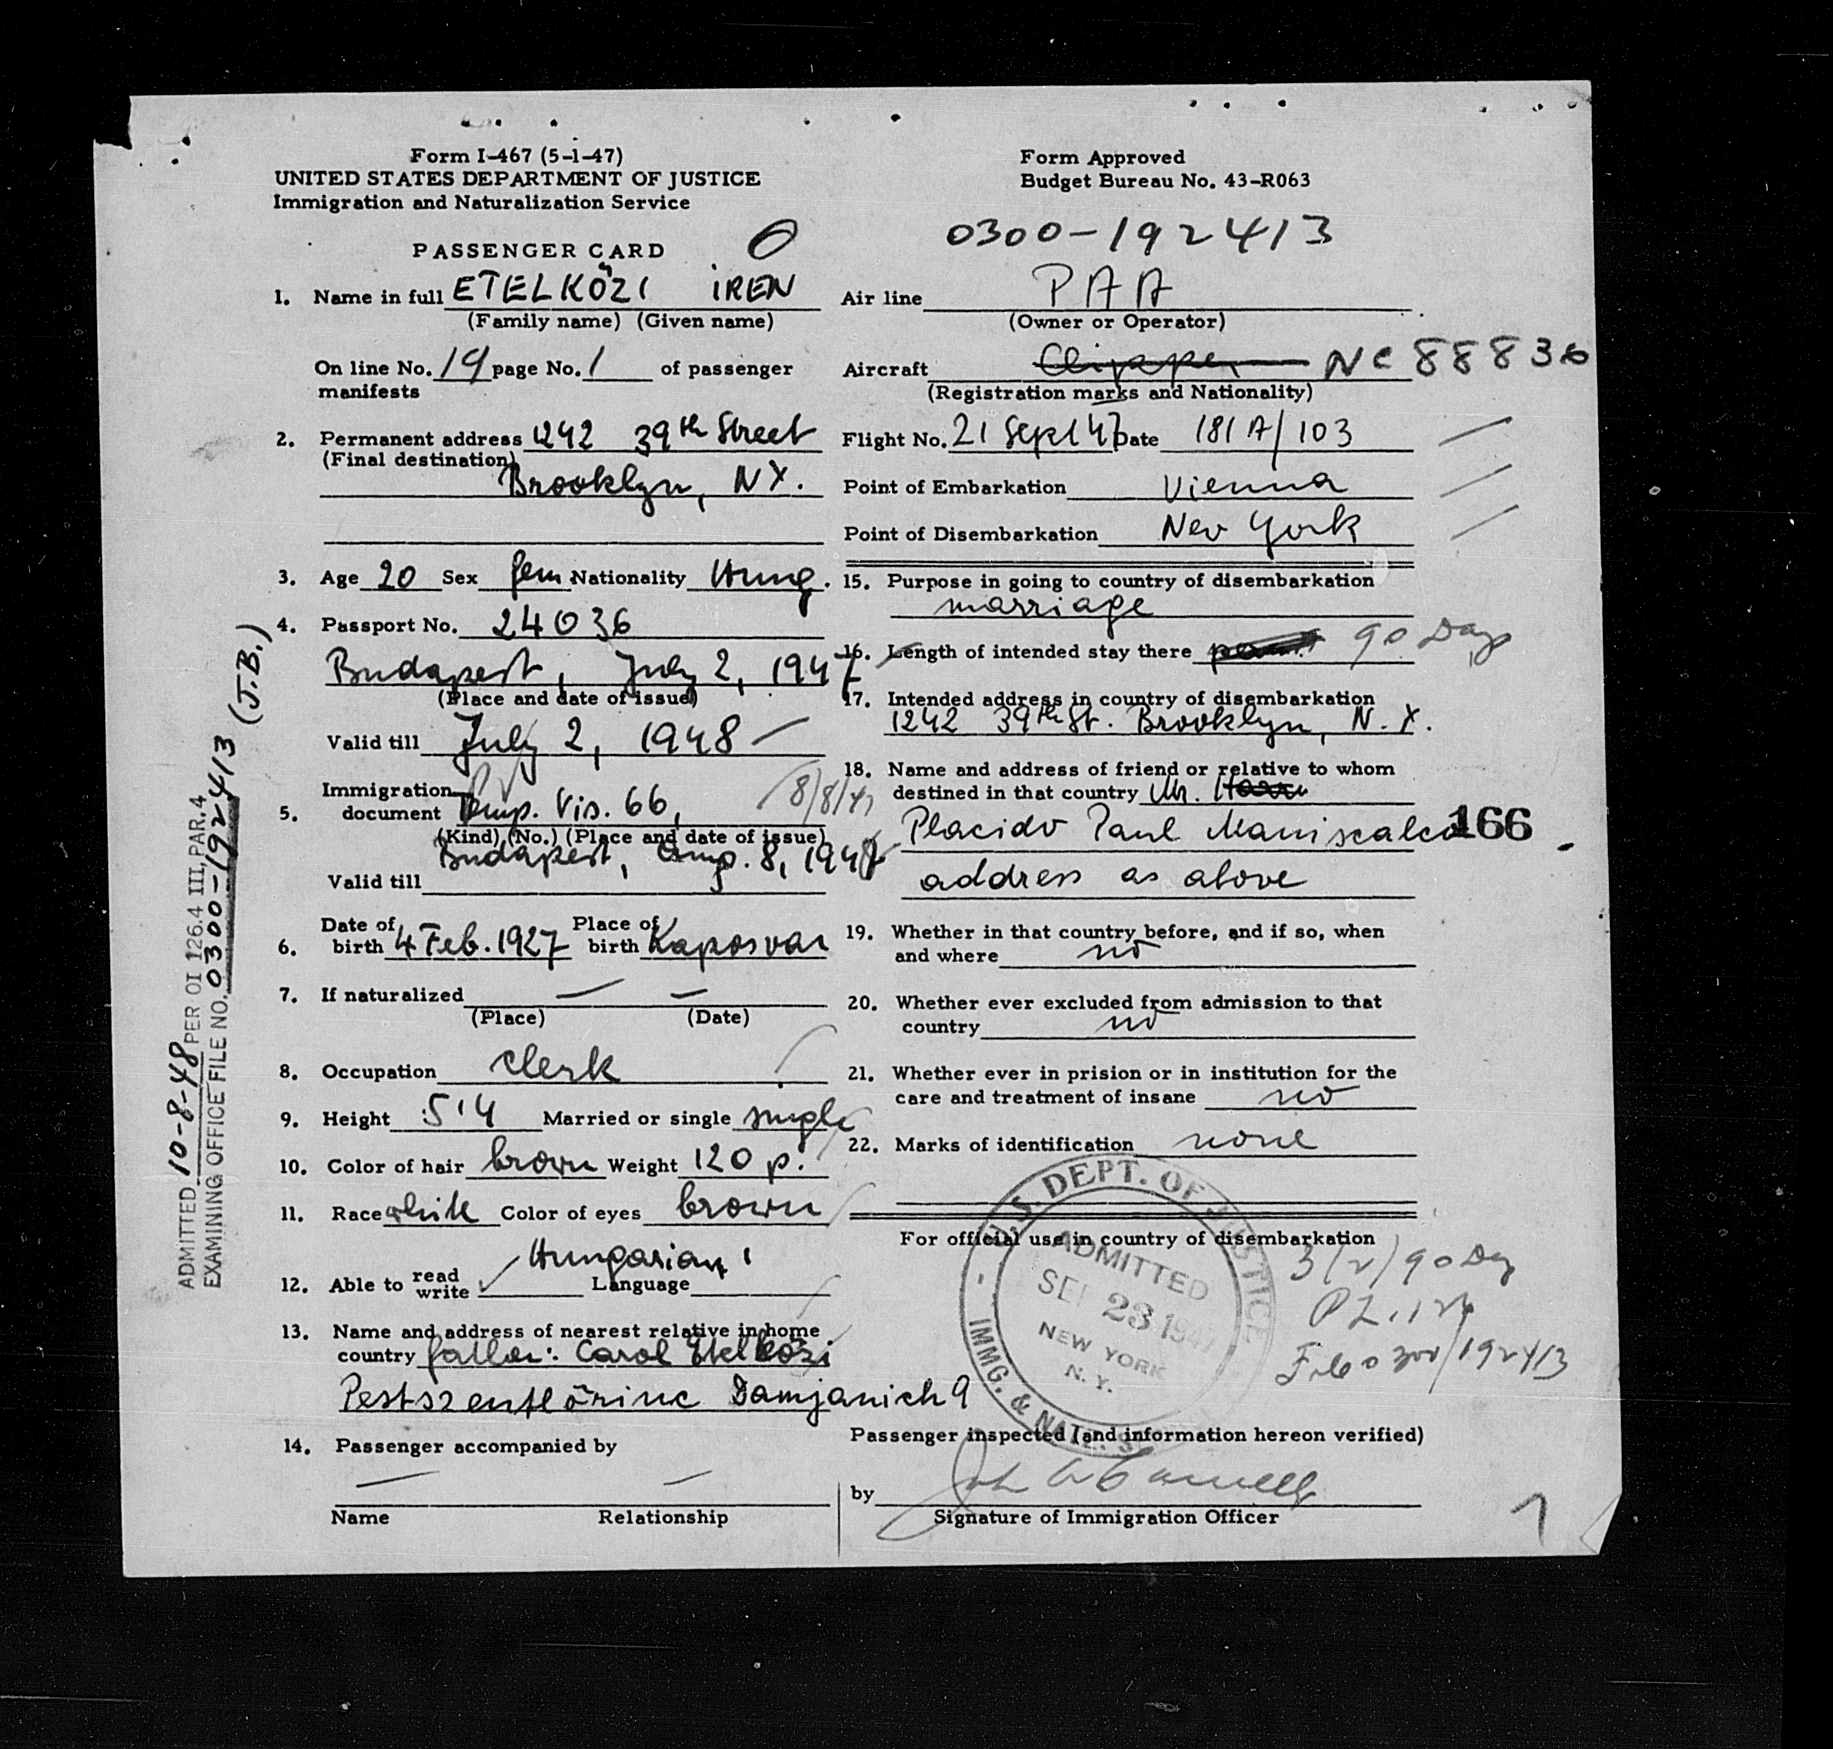 Form I-467 (5-1-47)
UNITED STATES DEPARTMENT OF JUSTICE
Immigration and Naturalization Service
PASSENGER CARD O
1. Name in full ETELKÖZI IREN
(Family name) (Given name)
On line No. 19 page No. 1 of passenger
manifests
2. Permanent address 1242 39th Street
(Final destination)
Brooklyn, N.Y.
3. Age 20 Sex fem Nationality Hung.
4. Passport No. 24036
Budapest, July 2, 1947
(Place and date of issue)
Valid till July 2, 1948
Immigration
5. document Temp. Vis. 66, 8/8/47
(Kind) (No.) (Place and date of issue)
Budapest, Aug. 8, 1947
Valid till
6. Date of birth 4 Feb. 1927 Place of birth Kaposvar
7. If naturalized — —
(Place) (Date)
8. Occupation clerk
9. Height 5'4 Married or single single
10. Color of hair brown Weight 120 p.
11. Race white Color of eyes brown
12. Able to read write ✓ Language Hungarian
13. Name and address of nearest relative in home
country father: Carol Etelközi
Pestszentlőrinc Damjanich 9
14. Passenger accompanied by
— —
Name Relationship
Form Approved
Budget Bureau No. 43-R063
0300-192413
Air line PAA
(Owner or Operator)
Aircraft Clipper NC 88836
(Registration marks and Nationality)
Flight No. 21 Sept 47 Date 181A/103
Point of Embarkation Vienna
Point of Disembarkation New York
15. Purpose in going to country of disembarkation
marriage
16. Length of intended stay there 90 Days
17. Intended address in country of disembarkation
1242 39th St. Brooklyn, N.Y.
18. Name and address of friend or relative to whom
destined in that country Mr.
Placido Paul Maniscalco 166
address as above
19. Whether in that country before, and if so, when
and where no
20. Whether ever excluded from admission to that
country no
21. Whether ever in prision or in institution for the
care and treatment of insane no
22. Marks of identification none
For official use in country of disembarkation
U.S. DEPT. OF JUSTICE
ADMITTED
SEP 23 1947
NEW YORK
N.Y.
IMMG. & NATZ. S
3(2) 90 Day
/192413
Passenger inspected (and information hereon verified)
by
Signature of Immigration Officer
1
ADMITTED 10-8-48 PER OI 126.4 III, PAR. 4
EXAMINING OFFICE FILE NO. 0300-192413 (J.B.)